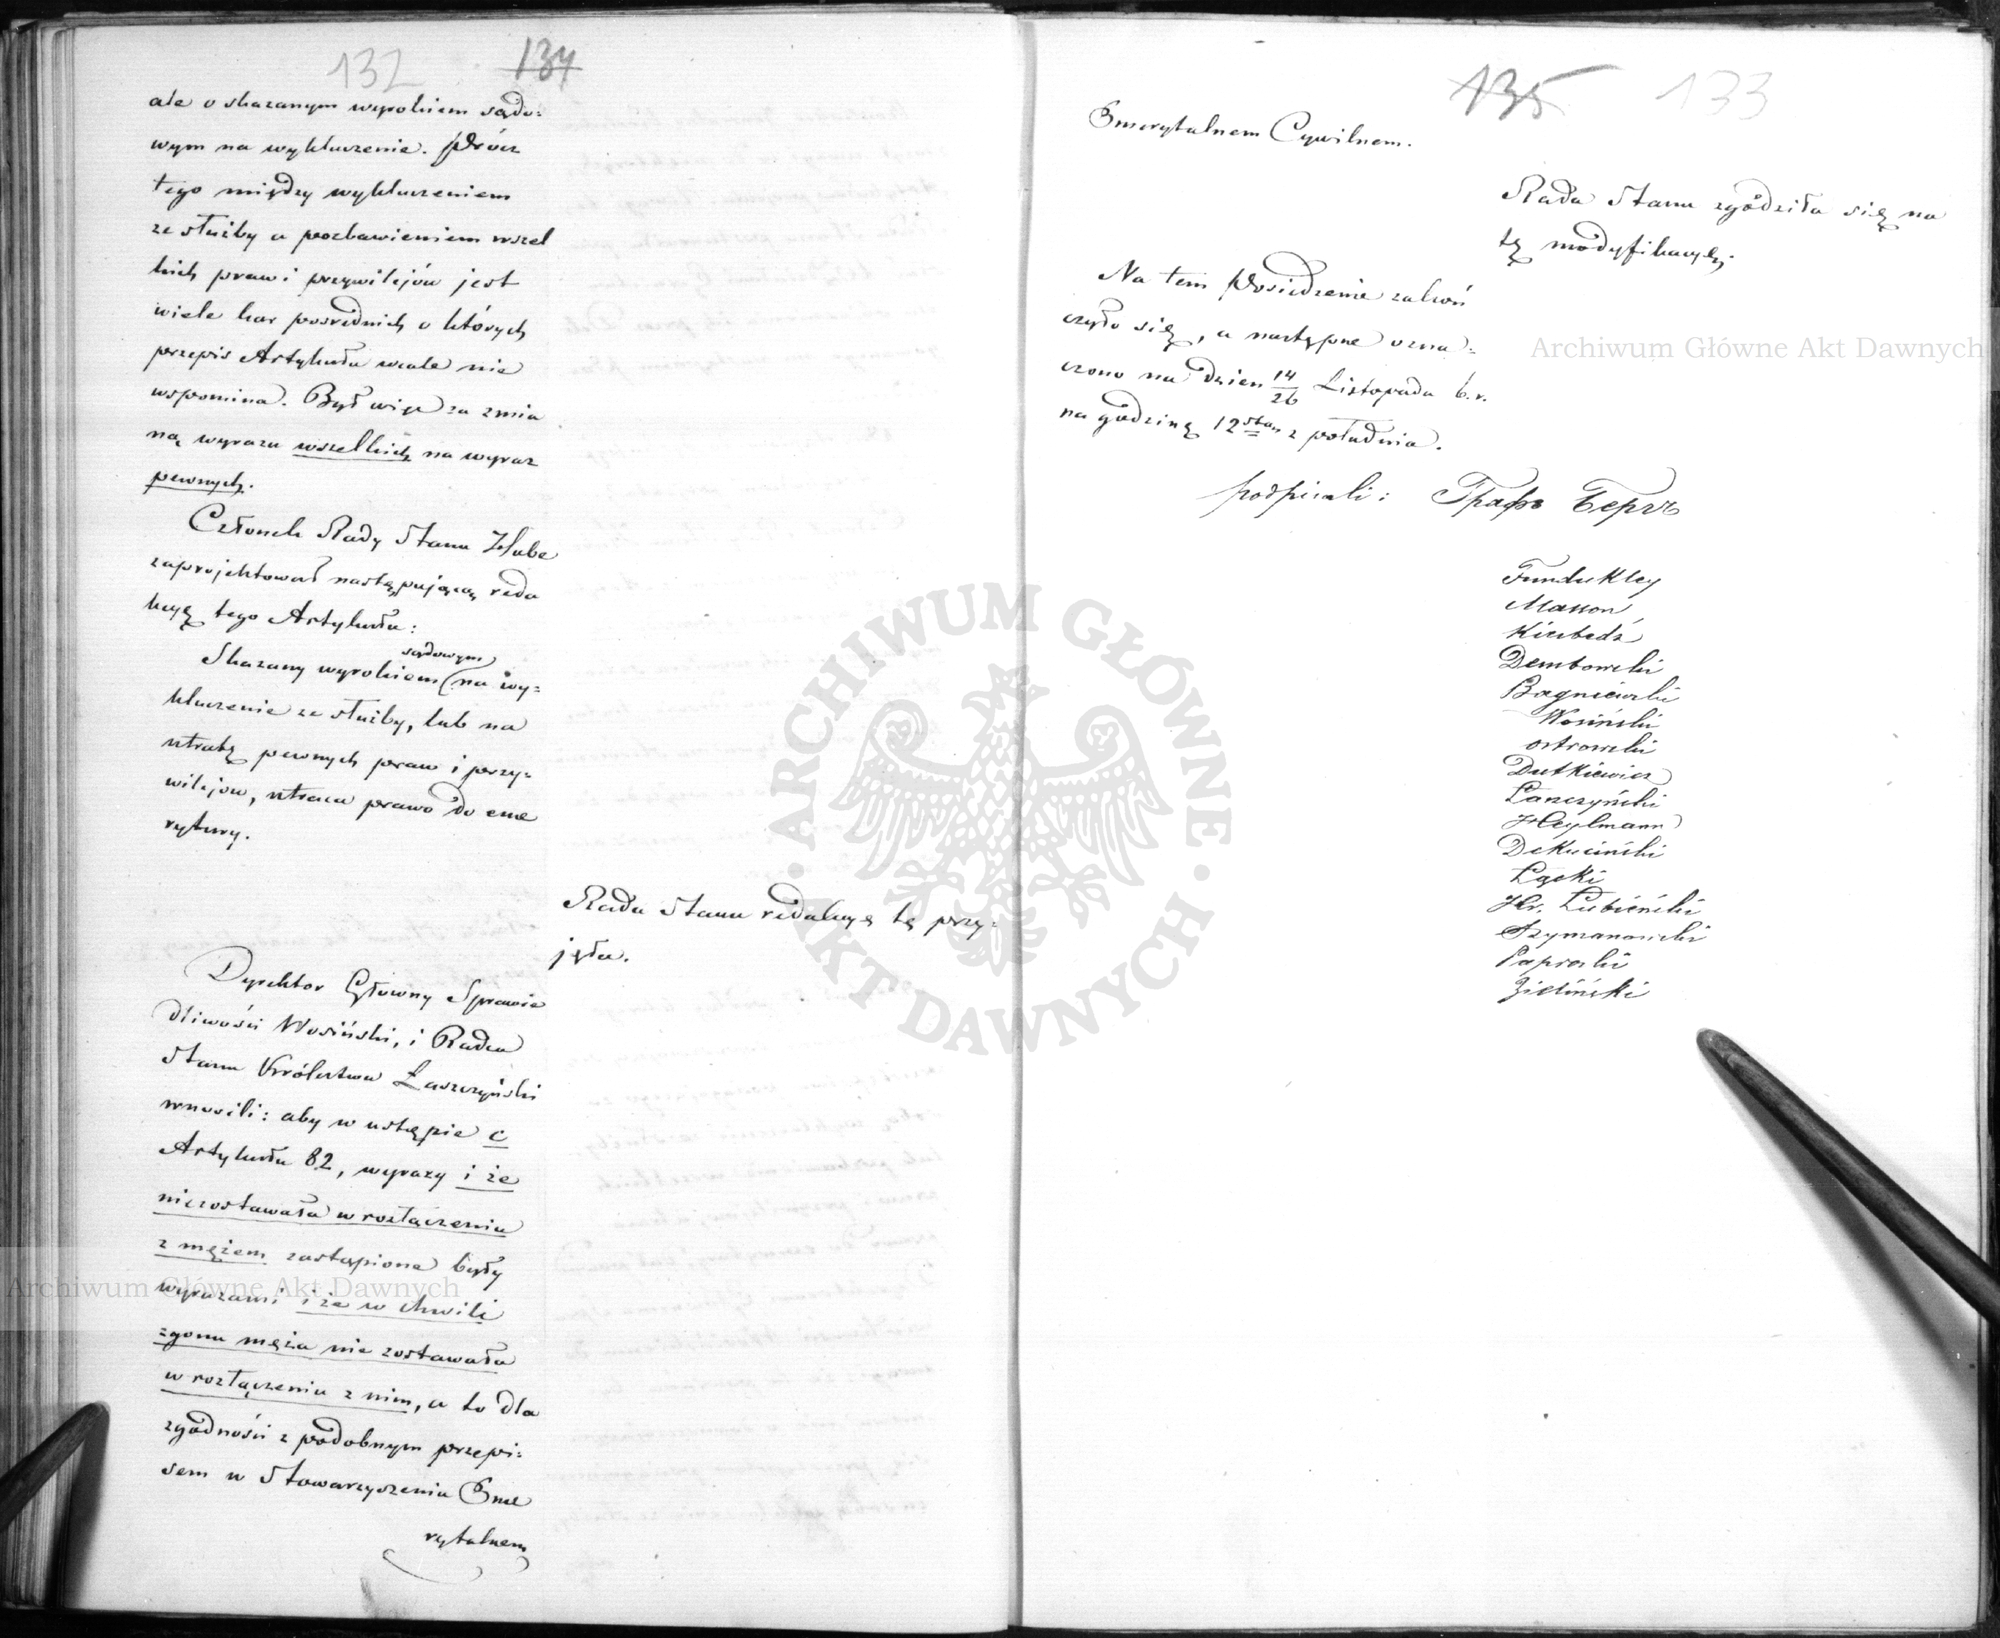 132 134
ale o skazanym wyrokiem sądo=
wym na wykluczenie. Prócz
tego między wykluczeniem
ze służby a pozbawieniem wszel
kich praw i przywilejów jest
wiele kar pośrednich o których
przepis Artykułu wcale nie
wspomina. Był więc za zmia
ną wyrazu wszelkich na wyraz
pewnych.
Członek Rady Stanu Hube
zaprojektował następującą reda
kcyę tego Artykułu:
sądowym
Skazany wyrokiem (na wy=
kluczenie ze służby, lub na
utratę pewnych praw i przy=
wilejów, utraca prawo do eme
rytury.
Rada Stanu redakcyę tę przy=
jęła.
Dyrektor Główny Sprawie
dliwości Wosiński, i Radca
Stanu Królestwa Łaszczyński
wnosili: aby w ustępie c
Artykułu 82, wyrazy i że
niezostawała w rozłączeniu
z mężem zastąpione były
wyrazami i że w chwili
zgonu męża nie zostawała
w rozłączeniu z nim, a to dla
zgodności z podobnym przepi=
sem w Stowarzyszeniu Eme
rytalnem
135 133
Emerytalnem Cywilnem.
Rada Stanu zgodziła się na
tę modyfikacyę.
Na tem Posiedzenie zakoń
czyło się, a następne ozna=
czono na dzień 14/26 Listopada b.r.
na godzinę 12stą z południa.
podpisali: Графъ Бергъ
Fundukley
Masson
Kierbedź
Dembowski
Bagniewski
Wosiński
Ostrowski
Dutkiewicz
Łaszczyński
Heylmann
Dekuciński
Łąski
Hr. Łubieński
Szymanowski
Paprocki
Zieliński
Archiwum Główne Akt Dawnych
Archiwum Główne Akt Dawnych
ARCHIWUM GŁÓWNE · AKT DAWNYCH ·